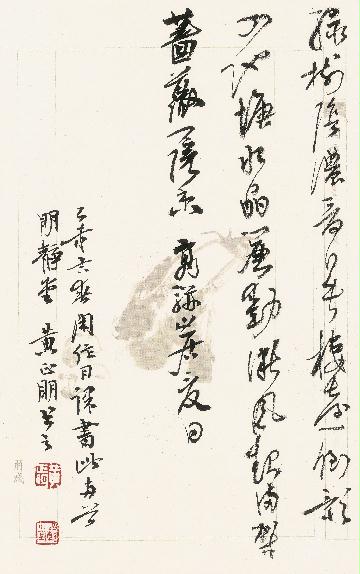 綠樹陰濃夏日長樓臺倒影
入池塘水晶簾動微風起滿架
薔薇一院香 高駢山居夏日
日課書此
明靜堂 黃正明